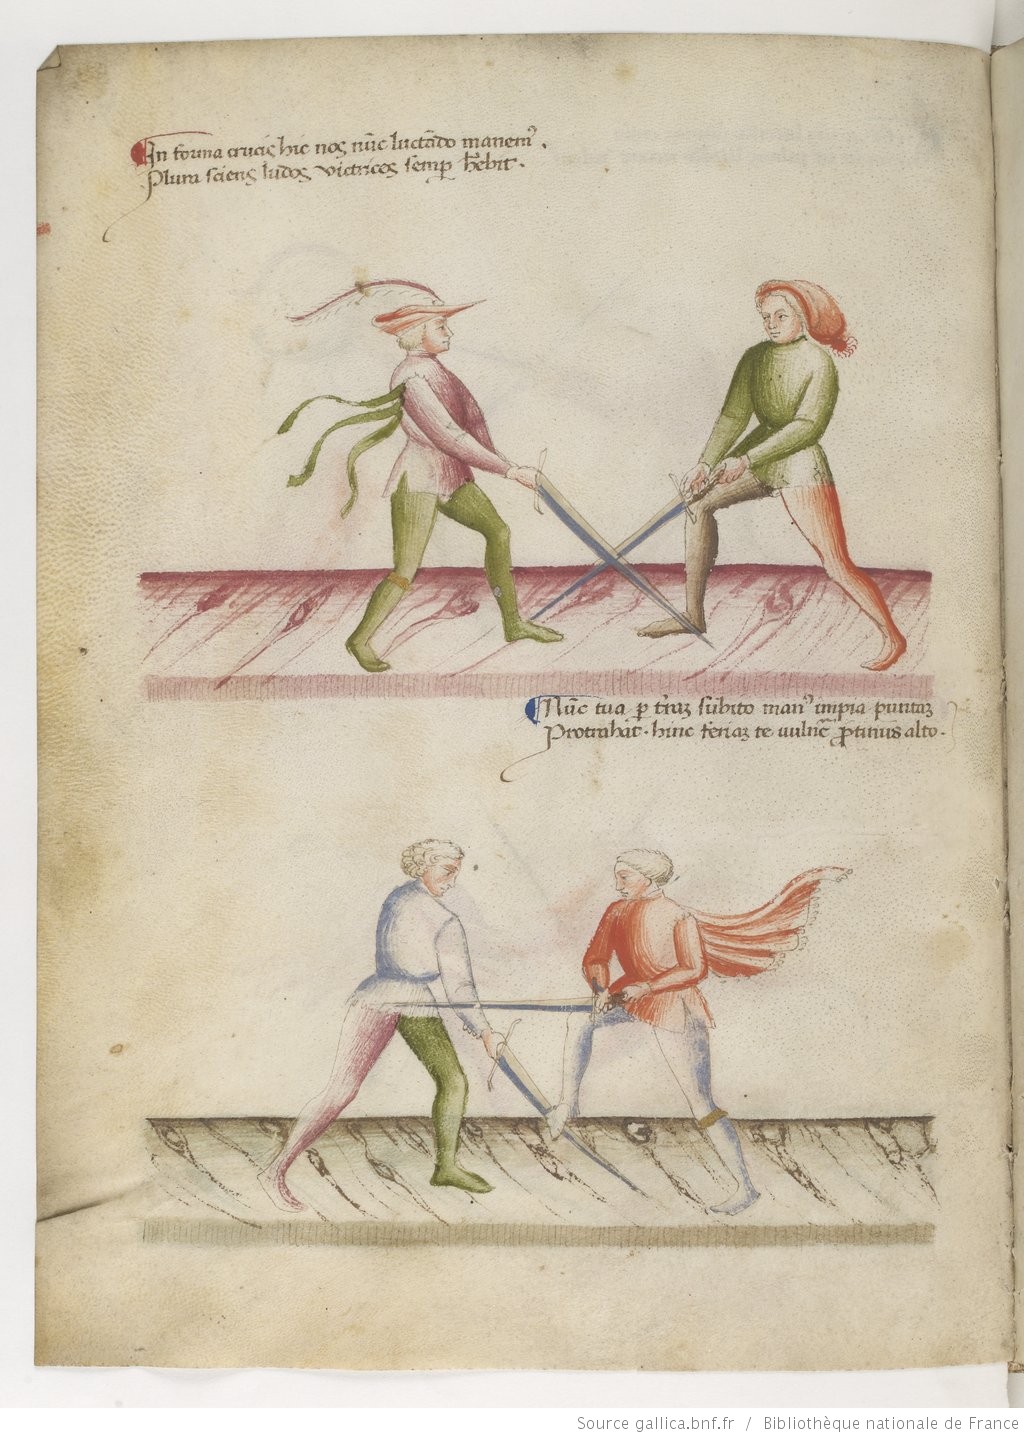 In forma crucis hic nos nūc luctādo manemꝰ.
Plura sciens ludos victrices semꝑ hēbit.
Nūc tua ꝑ t̄raꝫ subito manꝰ impia puntaꝫ
Protrahāt. hinc feriaꝫ te vulnē ꝓtinus alto.
Source gallica.bnf.fr / Bibliothèque nationale de France